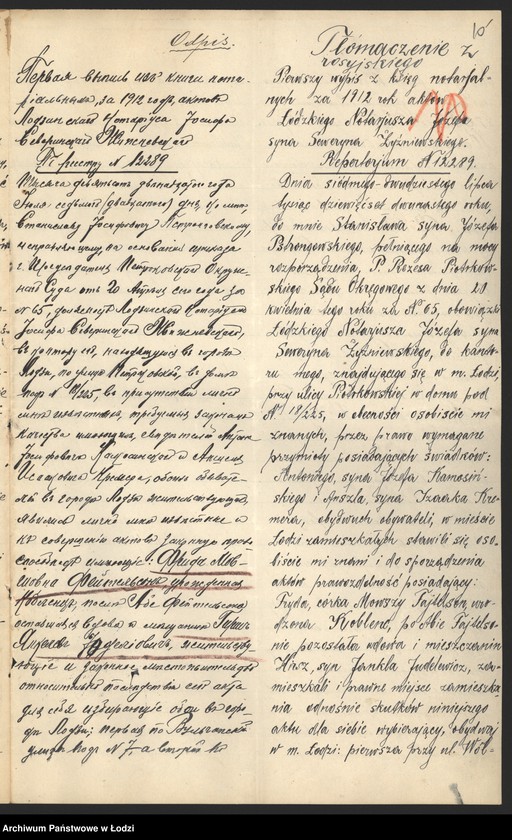 10
Odpis.
Первая выпись изъ книги нота-
ріальныхъ за 1912 годъ, актовъ
Лодзинскаго Нотаріуса Іосифа
Северинъ
По реестру N 12289
Тысяча девятьсотъ двѣнадцатаго года
Іюля седьмаго (двадцатаго) дня, ко мнѣ,
Станиславу Іосифовичу Петронговскому,
исправляющему, на основаніи приказа
г. Предсѣдателя Петроковскаго Окруж-
наго Суда отъ 20 Апрѣля сего года за
N 65, должность Лодзинскаго Нотаріуса
Іосифа Северинъ
въ контору его, находящуюся въ городѣ
Лодзи, по улицѣ Петроковской, въ домѣ
подъ N 18/225, въ присутствіи лично
мнѣ извѣстныхъ, требуемыя закономъ
качества имѣющихъ, свидѣтелей Антона
Іосифовича
обоихъ обывате-
лей, въ городѣ Лодзи жительствующихъ,
явились лично мнѣ извѣстные и
къ совершенію актовъ законную право-
способность имѣющіе: Фрида Мов-
шовна Файтельсонъ урожденная
Коблевъ, послѣ Абе Файтельсона
оставшаяся вдова и мѣщанинъ Гиршъ
Янкель Юделіовичъ, жительству-
ющіе и законное мѣстожительство
относительно послѣдствій сего акта
для себя избирающіе оба въ горо-
дѣ Лодзи: первая по Вульчанской
улицѣ подъ N 7, а второй по
Tłómaczenie z
rosyjskiego
Pierwszy wypis z ksiąg notarjal-
nych za 1912 rok aktów
Łódzkiego Notarjusza Józefa
syna Seweryna Żyźniewskiego.
Repertorjum N 12289.
Dnia siódmego-dwudziestego lipca
tysiąc dziewięćset dwunastego roku,
do mnie Stanisława syna Józefa
Petrongowskiego, pełniącego na mocy
rozporządzenia, P. Prezesa Piotrkow-
skiego Sądu Okręgowego z dnia 20
kwietnia tego roku za Nr. 65, obowiązki
Łódzkiego Notarjusza Józefa syna
Seweryna Żyźniewskiego, do kanto-
ru mego, znajdującego się w m. Łodzi,
przy ulicy Piotrkowskiej w domu pod
Nr 18/225, w obecności osobiście mi
znanych, przez prawo wymagane
przymioty posiadających świadków:
Antoniego, syna Józefa Kamosiń-
skiego i Anszla, syna Izaaka Kre-
mera, obydwuch obywateli, w mieście
Łodzi zamieszkałych stawili się oso-
biście mi znani i do sporządzenia
aktów prawozdolność posiadający:
Fryda, córka Mowszy Fajtelson, uro-
dzona Koblew, po Abie Fajtelso-
nie pozostała wdowa i mieszczanin
Hirsz, syn Jankla Judelewicz, za-
mieszkali i prawne miejsce zamieszka-
nia odnośnie skutków niniejszego
aktu dla siebie wybierający, obydwaj
w m. Łodzi: pierwsza przy ul. Wól-
Archiwum Państwowe w Łodzi